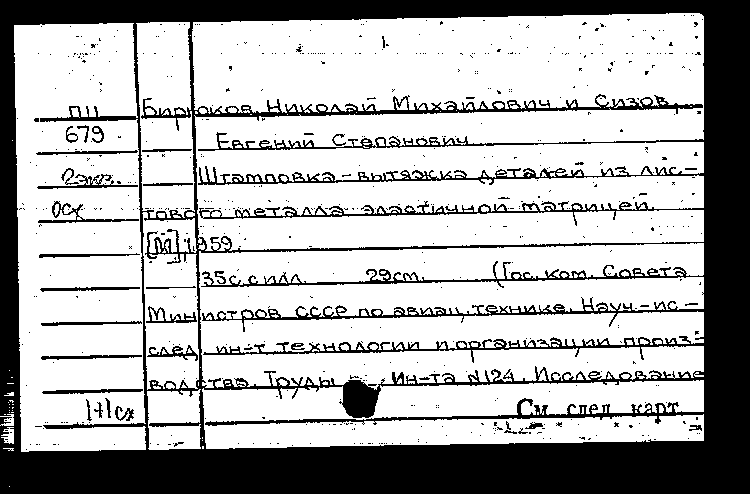 ПII Бирюков, Николай Михайлович и Сизов,
679 Евгений Степанович
2экз. Штамповка-вытяжка деталей из лис-
осх тового металла эластичной матрицей.
[М], 1959.
35с. с илл. 29см. (Гос. ком. Совета
Министров СССР по авиац. технике. Науч.-ис-
след. ин-т технологии и организации произ-
водства. Труды Ин-та №124. Исследование
1+1сх См след. карт.